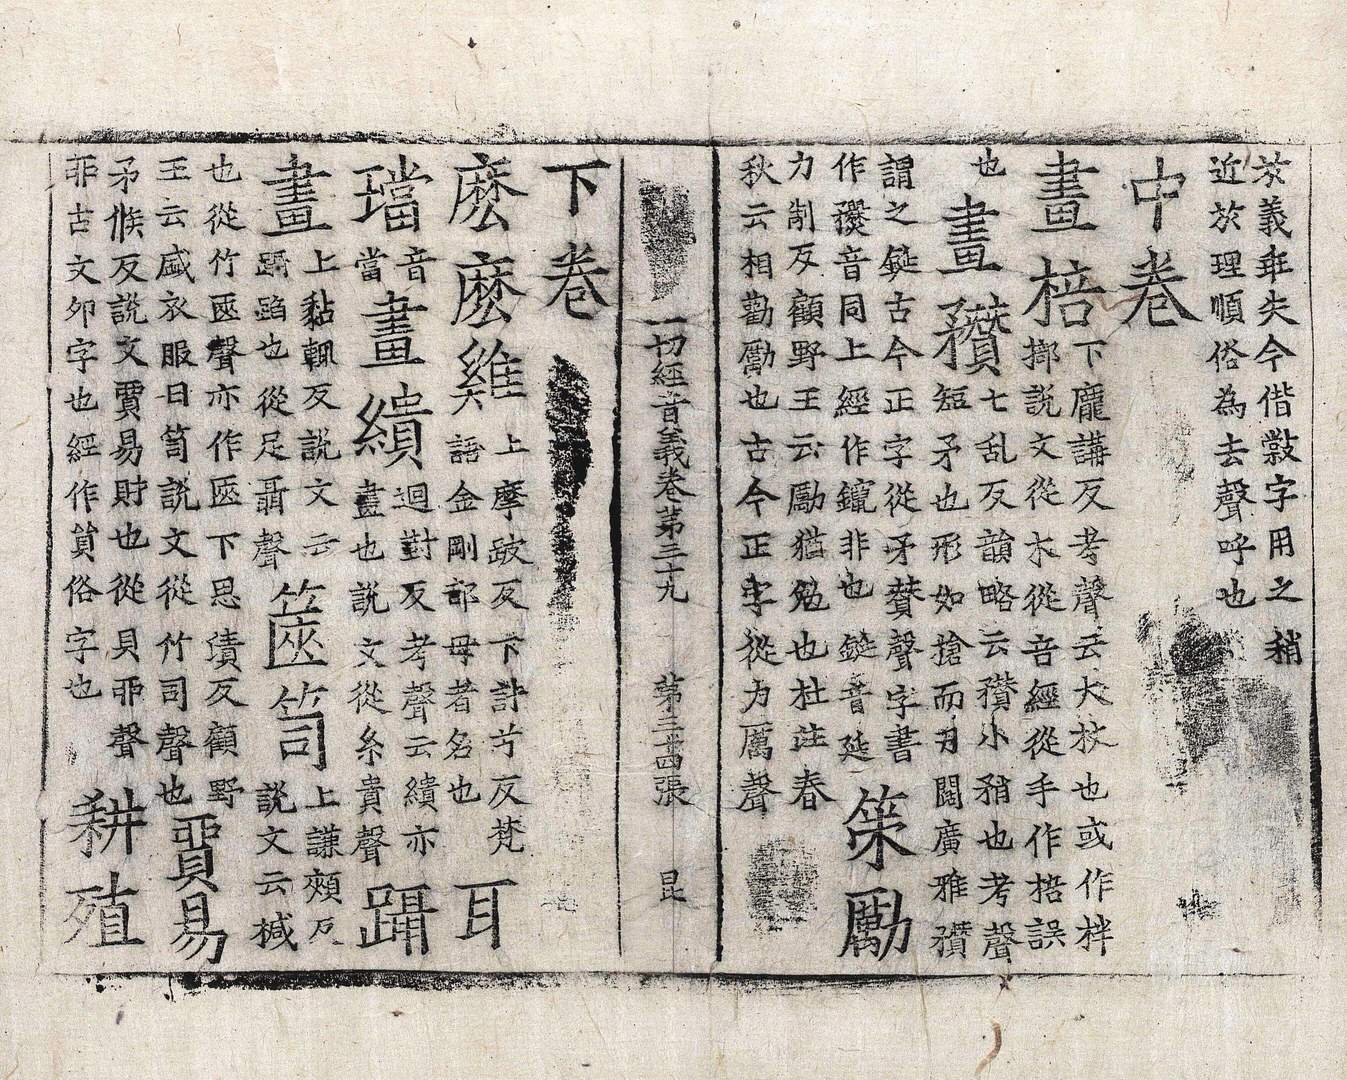 於義乖失今借敹字用之稍
近於理順俗為去聲呼也
中卷
畫棓
下龐講反考聲云大杖也或作柈
擲說文從木從音經從手作掊誤
也
畫矟
七乱反韻略云矟小矟也考聲
短矛也形如搶而刃闊廣雅矟
謂之鋋古古今正字從矛贊聲字書
作穳音同上經作鑹非也鋋音延
策勵
力制反顧野王云勵猶勉也杜注春
秋云相勸勵也古今正字從力厲聲
一切經音義卷第三十九 第三十四張 昆
下卷
麽麽雞
上摩跛反下計兮反梵
語金剛部母者名也
耳
璫
音
當
畫繢
迴對反考聲云繢亦
畫也說文從糸貴聲
躡
畫
上黏輒反說文云
躡蹈也從足聶聲
篋笥
上謙頰反
說文云椷
也從竹匧聲亦作匧下思漬反顧野
王云盛衣服曰笥說文從竹司聲也
貿易
矛候反說文貿易財也從貝丣聲
非古文卯字也經作貿俗字也
耕殖